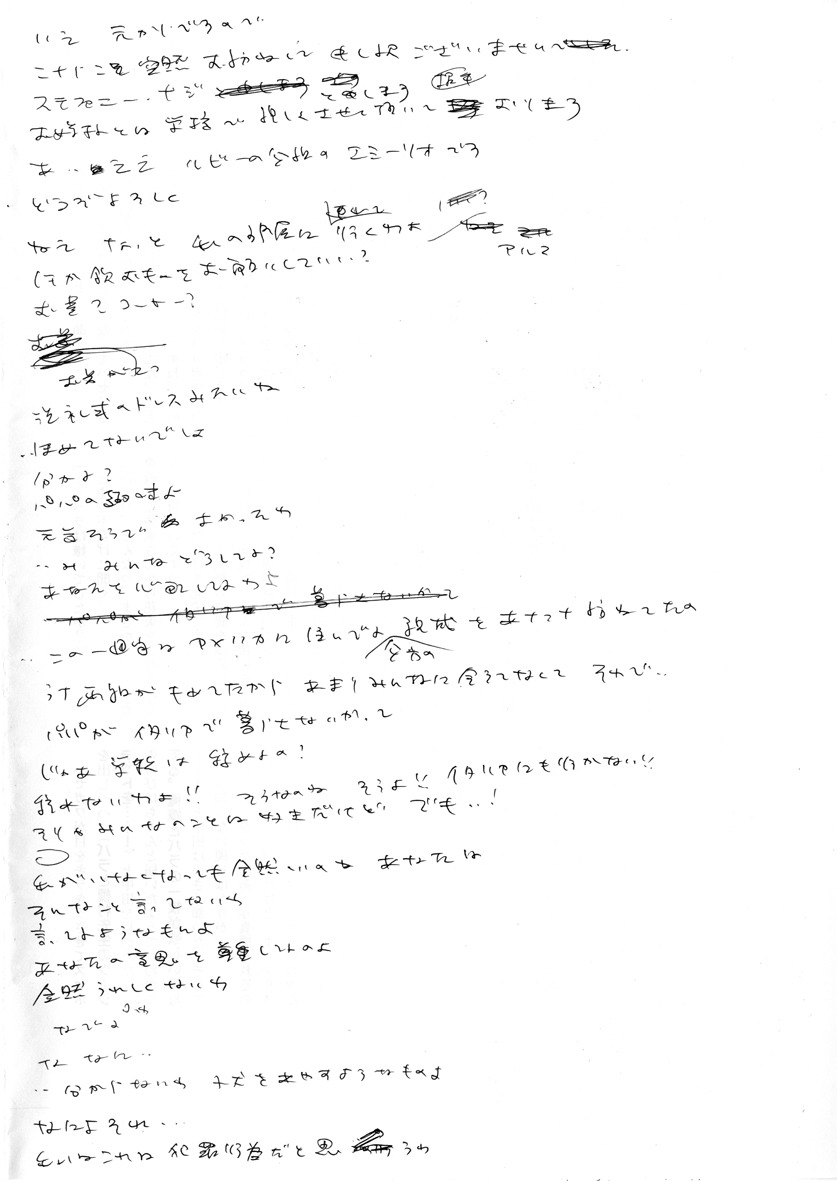 いえ 元からですので
こちらこそ突然お訪ねして申し訳ございません
ステファニー・ナジと申しまう
お嬢様とは学校で親しくさせて頂いておりまう
あ‥ええ ルビーの父親のエミーリオでう
どうぞよろしく
ねえ ちょっと 私の部屋に行くわよ
アルマ
何か飲むものをお願いしていい?
お量?コーヒー?
洗礼式のドレスみたいね
‥ほめてないでしょ
分かる?
パパの趣味よ
元気そうで よかったわ
‥み みんなどうしてる?
あなたを心配してるわよ
‥この一週間はアメリカに住んでる親戚をあちこち訪ねてたの
父方の
パパがイタリアで暮らさないかって
じゃあ学校は辞めるの?
辞めないわよ!! そうなのね そうよ!! イタリアにも行かない!!
そりゃみんなのことは好きだけど でも‥!
私がいなくなっても全然いいのね あなたは
そんなこと言ってないわ
言ってるようなもんよ
あなたの意思を尊重してるのよ
全然うれしくないわ
なんでよ
な なに‥
‥分からないわ
なによそれ‥
私はこれは犯罪行為だと思うわ